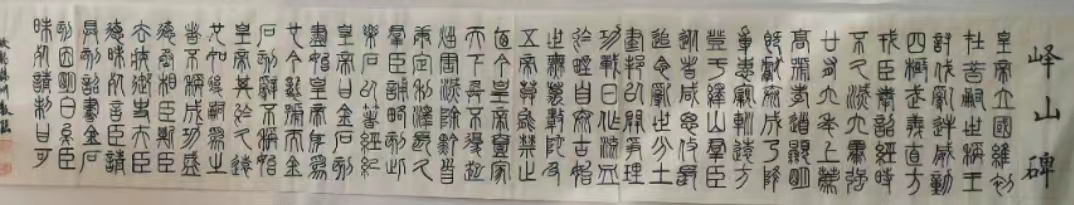 嶧山碑
皇帝立國維初
在昔嗣世稱王
討伐亂逆威動
四極武義直方
戎臣奉詔經時
不久滅六暴強
廿有六年上薦
高號孝道顯明
既獻泰成乃降
專惠親巡遠方
登于繹山群臣
從者咸思攸長
追念亂世分土
建邦以開爭理
功戰日作流血
於野自泰古始
世無萬數陀及
五帝莫能禁止
廼今皇帝壹家
天下兵不復起
災害滅除黔首
康定利澤長久
群臣誦略刻此
樂石以著經紀
皇帝曰金石刻
盡始皇帝所為
也今襲號而金
石刻辭不稱始
皇帝其於久遠
也如後嗣為之
者不稱成功盛
德丞相臣斯臣
去疾御史大夫臣
德昧死言臣請
具刻詔書金石
刻因明白矣臣
昧死請制曰可